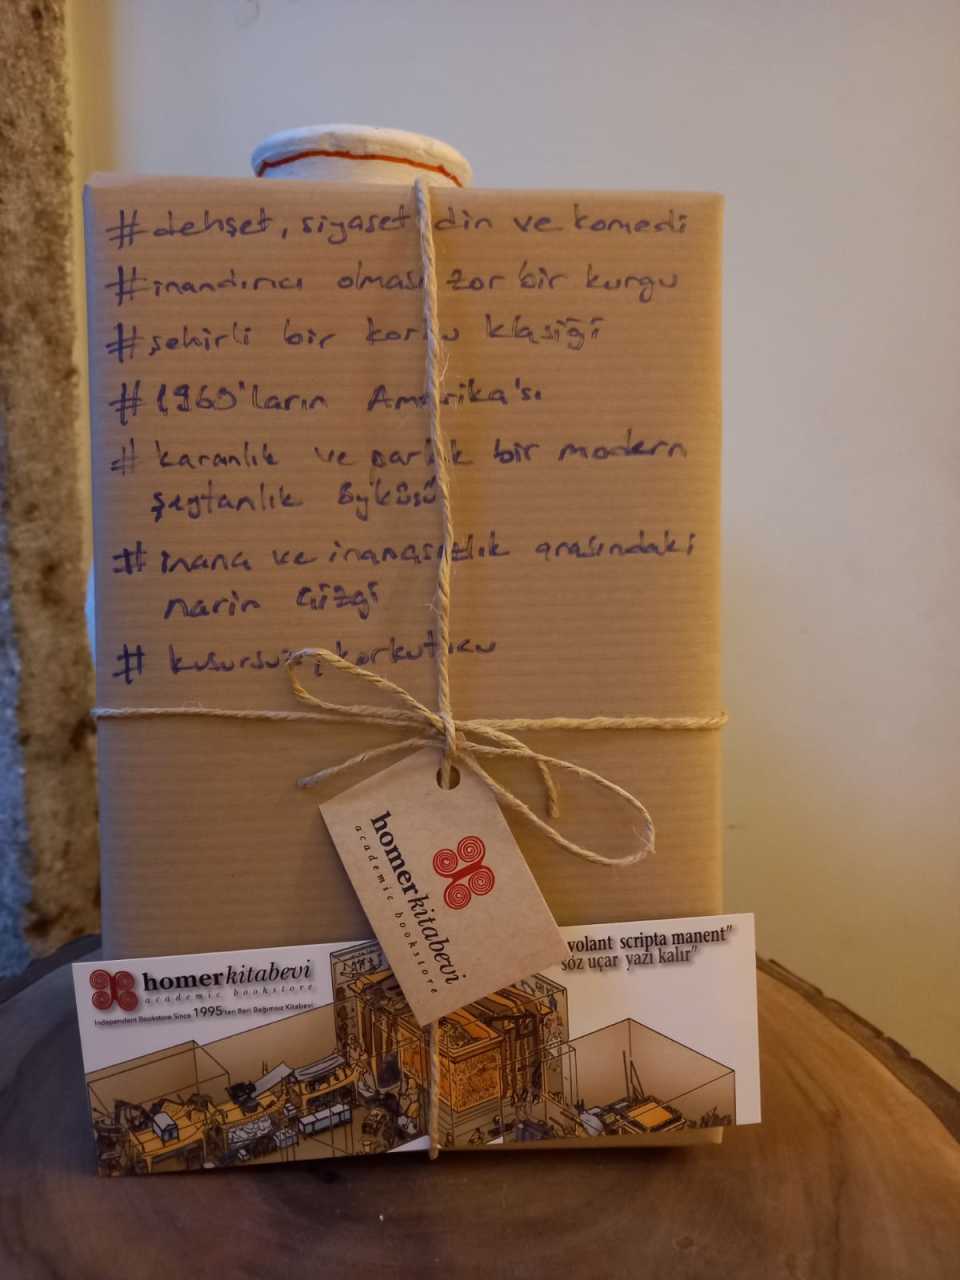 #dehşet, siyaset din ve komedi
#inandırıcı olması zor bir kurgu
#şehirli bir korku klasiği
#1960'ların Amerika'sı
#karanlık ve parlak bir modern
şeytanlık öyküsü
#inanç ve inançsızlık arasındaki
narin çizgi
#kusursuz, korkutucu
homerkitabevi
academic bookstore
homerkitabevi
academic bookstore
Independent Bookstore Since 1995'ten Beri Bağımsız Kitabevi
volant scripta manent"
söz uçar yazı kalır"